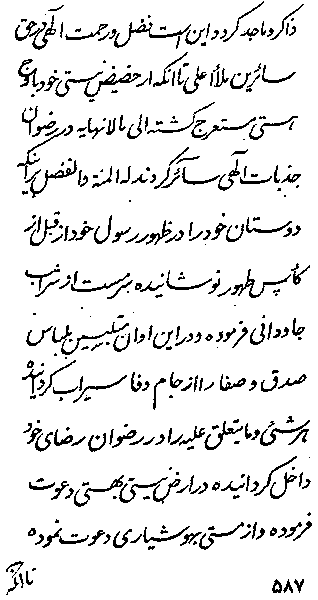 ذاکر و ماجد کرد و این است فضل و رحمت الهی در حق
سائرین ملأ اعلی تا آنکه از حضیض پستی خود باوج
هستی مستعرج گشته الی مالانهایه در رضوان
جذبات الهی سائر گردند له المنة والفضل بر اینکه
دوستان خود را در ظهور رسول خود از قبل از
کأس طهور نوشانیده سرمست از شراب
جاودانی فرموده و در این اوان متلبسین بلباس
صدق و صفا را از جام وفا سیراب گردانیده
هر شیئی و ما یتعلق علیه را در رضوان رضای خود
داخل گردانیده در ارض نیستی بهستی دعوت
فرموده و از مستی بهوشیاری دعوت نموده
تا آنکه
۵۸۷